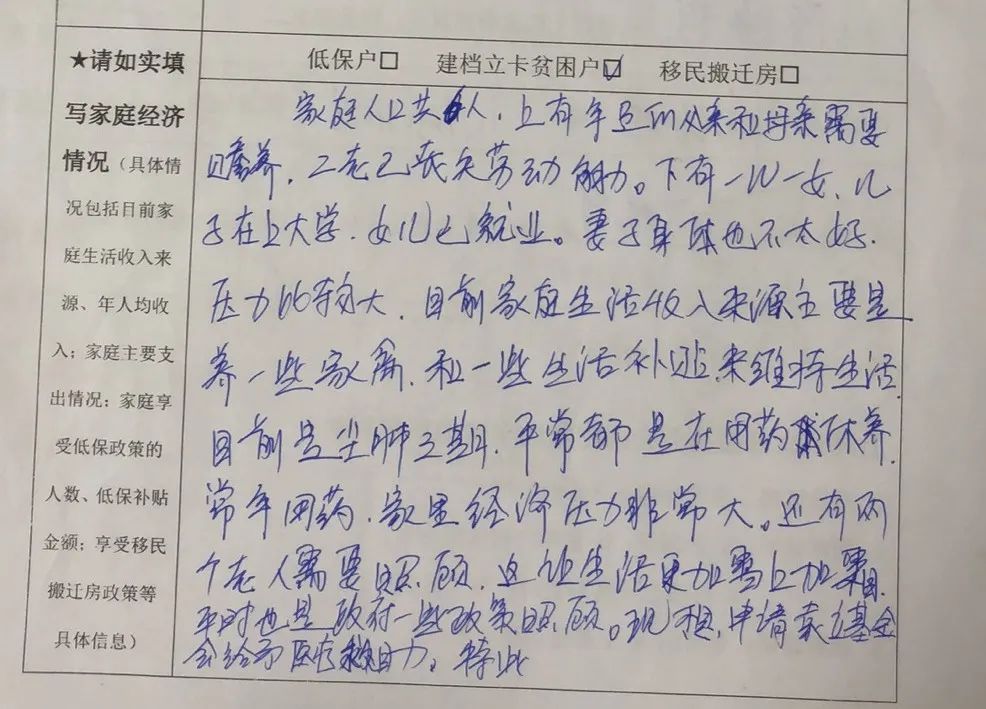 低保户□ 建档立卡贫困户☑ 移民搬迁房□
★请如实填
写家庭经济
情况（具体情
况包括目前家
庭生活收入来
源、年人均收
入；家庭主要支
出情况：家庭享
受低保政策的
人数、低保补贴
金额；享受移民
搬迁房政策等
具体信息）
家庭人口共6人，上有年迈的父亲和母亲需要
赡养，二老已丧失劳动能力。下有一儿一女，儿
子在上大学，女儿已就业。妻子身体也不太好，
压力比较大，目前家庭生活收入来源主要是
养一些家禽，和一些生活补贴，来维持生活，
目前是尘肺三期，平常都是在用药休养，
常年用药，家里经济压力非常大。还有两
个老人需要照顾，这让生活更加雪上加霜，
平时也是政府一些政策照顾。现想，申请基金
会给予医疗助力，特此